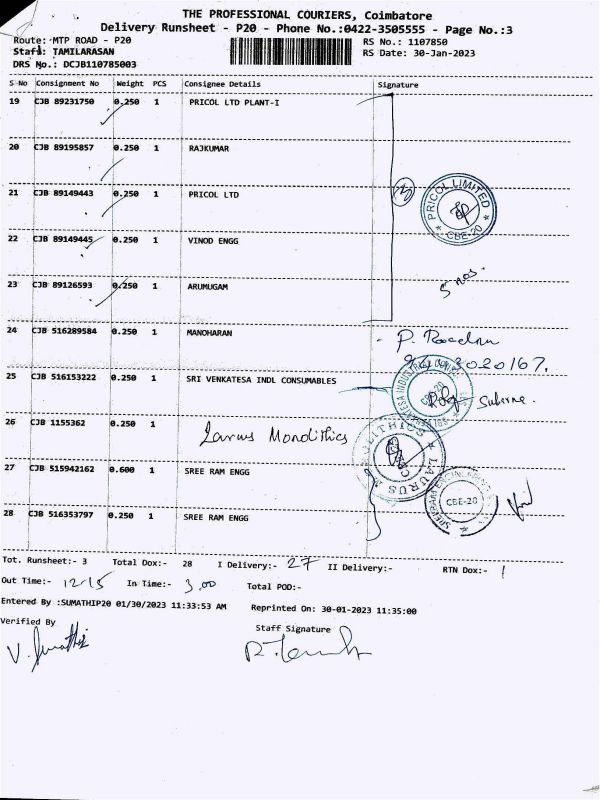 THE PROFESSIONAL COURIERS, Coimbatore
Delivery Runsheet - P20 - Phone No.:0422-3505555 - Page No.:3
Route: MTP ROAD - P20 RS No.: 1107850
Staff: TAMILARASAN RS Date: 30-Jan-2023
DRS No.: DCJB110785003
S No Consignment No Weight PCS Consignee Details Signature
19 CJB 89231750 0.250 1 PRICOL LTD PLANT-I
20 CJB 89195857 0.250 1 RAJKUMAR
21 CJB 89149443 0.250 1 PRICOL LTD
PRICOL LIMITED CBE-20
22 CJB 89149445 0.250 1 VINOD ENGG
5 nos.
23 CJB 89126593 0.250 1 ARUMUGAM
24 CJB 516289584 0.250 1 MANOHARAN
25 CJB 516153222 0.250 1 SRI VENKATESA INDL CONSUMABLES
26 CJB 1155362 0.250 1 Larus Monolithics
LAURUS
27 CJB 515942162 0.600 1 SREE RAM ENGG
CBE-20
28 CJB 516353797 0.250 1 SREE RAM ENGG
Tot. Runsheet:- 3 Total Dox:- 28 I Delivery:- 27 II Delivery:- RTN Dox:- 1
Out Time:- 12/15 In Time:- 3.00 Total POD:-
Entered By :SUMATHIP20 01/30/2023 11:33:53 AM Reprinted On: 30-01-2023 11:35:00
Verified By Staff Signature